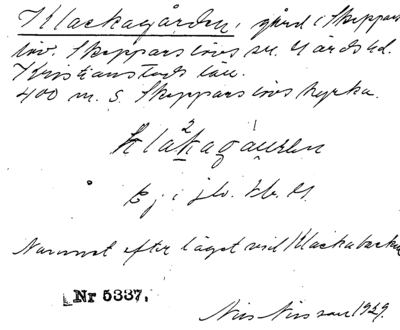 Klackagården, gård i Skeppars
löv. Skepparslövs sn. Gärds hd.
Kristianstads län.
400 m. S. Skepparslövs kyrka.
Ej i jb.
Namnet efter läget vid Klackabacken
Nr 5337.
Nils Nilsson 1929.